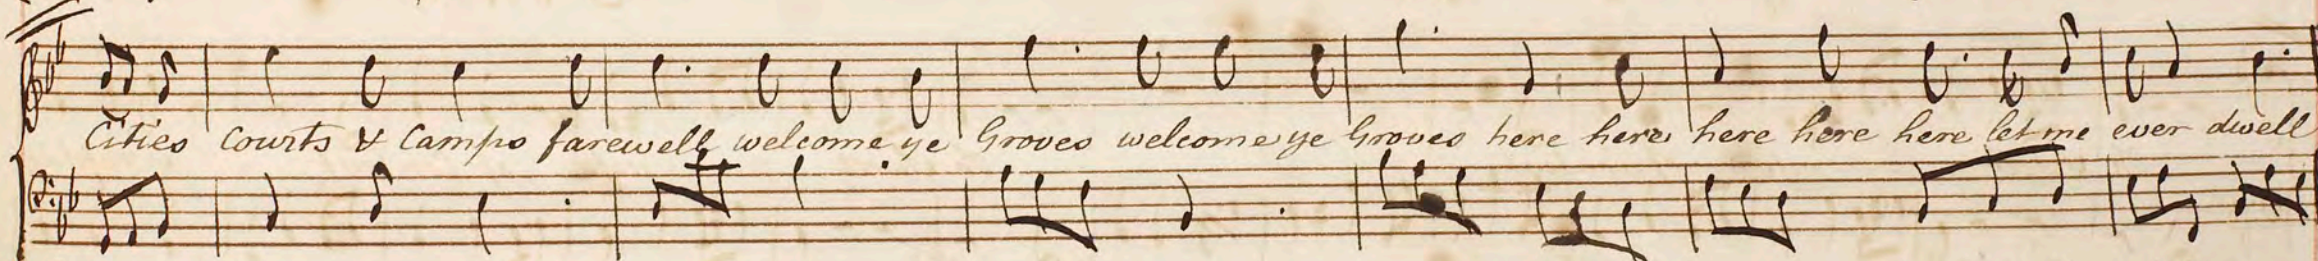 Cities Courts & Camps farewell welcome ye Groves welcome ye Groves here here here here here let me ever dwell